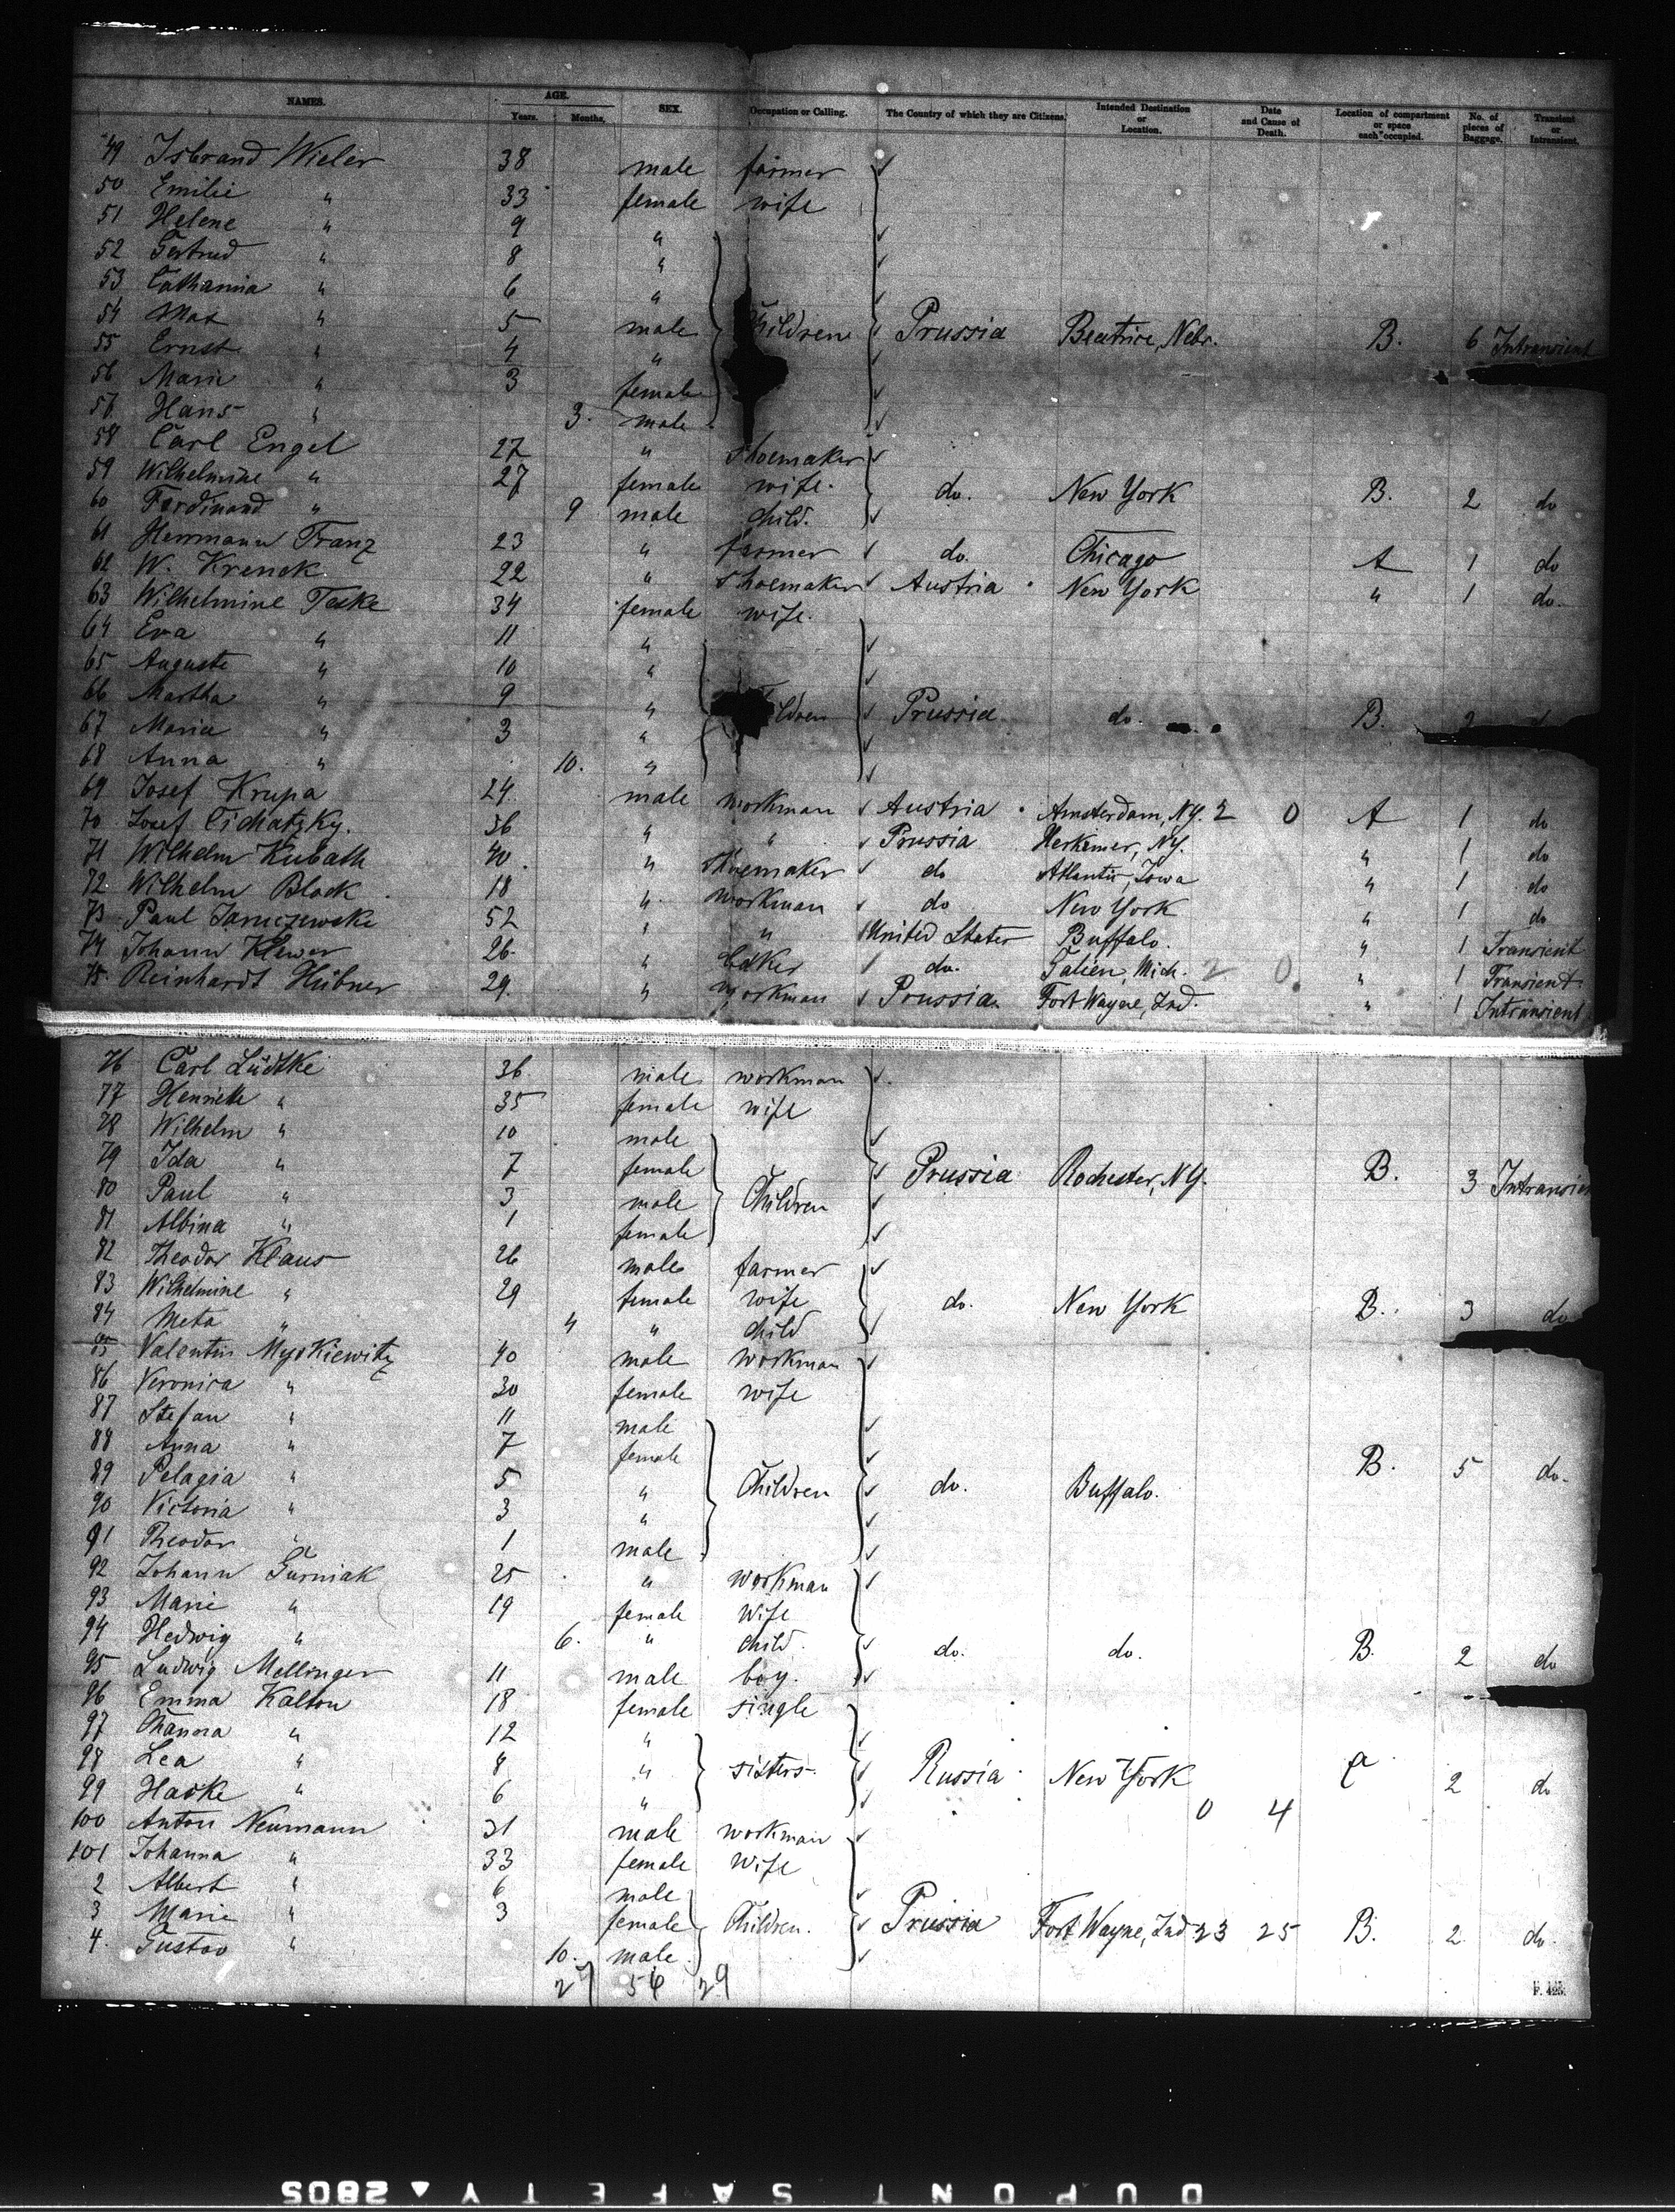 NAMES. AGE. SEX. Occupation or Calling. The Country of which they are Citizens. Intended Destination or Location. Date and Cause of Death. Location of compartment or space each occupied. No. of pieces of Baggage. Transient or Intransient.
Years. Months.
49 Isbrand Wieler 38 male farmer
50 Emilie " 33 female wife
51 Helene " 9 "
52 Gertrud " 8 "
53 Catharina " 6 "
54 Max " 5 male Children Prussia Beatrice, Nebr. B. 6 Intransient
55 Ernst " 4 "
56 Marie " 3 female
57 Hans " 3. male
58 Carl Engel 27 " shoemaker
59 Wilhelmine " 27 female wife. do. New York B. 2 do
60 Ferdinand " 9 male child.
61 Herrmann Franz 23 " farmer do. Chicago A 1 do
62 W. Krenek 22 " shoemaker Austria New York " 1 do.
63 Wilhelmine Teske 34 female wife.
64 Eva " 11 "
65 Auguste " 10 "
66 Martha " 9 " ldren Prussia do. B. 2
67 Maria " 3 "
68 Anna " 10. "
69 Josef Krupa 24 male workman Austria Amsterdam, NY. 2 0 A 1 do
70 Josef Cichatzky. 56 " " Prussia Herkimer, NY. " 1 do
71 Wilhelm Kubath 40 " shoemaker do Atlantic, Iowa " 1 do
72 Wilhelm Block 18 " workman do New York " 1 do
73 Paul 52 " " United States Buffalo. " 1 Transient
74 Johann Klewer 26. " baker do. Galien, Mich. 2 0 " 1 Transient
75. Reinhardt Hübner 29. " workman Prussia. Fort Wayne, Ind. " 1 Intransient
76 Carl Lüdtke 36 male workman
77 Henriette " 35 female wife
78 Wilhelm " 10 male
79 Ida " 7 female Prussia Rochester, NY. B. 3 Intransien
80 Paul " 3 male Children
81 Albina " 1 female
82 Theodor Klaus 26 male farmer
83 Wilhelmine " 29 female wife do. New York B. 3 do
84 Meta " 4 " child
85 Valentin Myskiewitz 40 male workman
86 Veronica " 30 female wife
87 Stefan " 11 male
88 Anna " 7 female B. 5 do.
89 Pelagia " 5 " Children do. Buffalo.
90 Victoria " 3 "
91 Theodor " 1 male
92 Johann Gurniak 25 " workman
93 Marie " 19 female wife
94 Hedwig " 6. " child. do. do. B. 2 do
95 Ludwig Mellinger 11 male boy.
96 Emma Kalton 18 female single
97 Channa " 12 "
98 Lea " 8 " sisters Russia New York a 2 do
99 Haske " 6 " 0 4
100 Anton Neumann 31 male workman
101 Johanna " 33 female wife
2 Albert " 6 male
3 Marie " 3 female Children. Prussia Fort Wayne, Ind 23 25 B. 2 do.
4. Gustav " 10. male
27 56 29
F. 425.
DUPONT SAFETY ▲ 2805